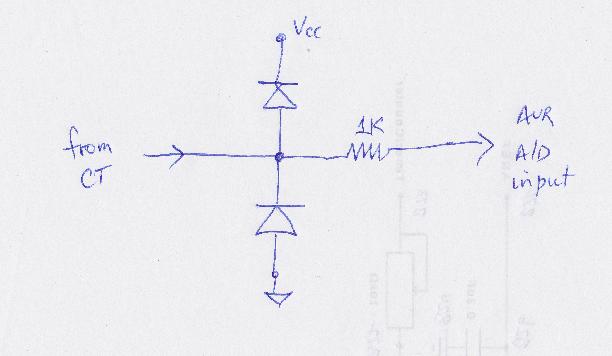 Vcc
1K
from
CT
AVR
A/D
input